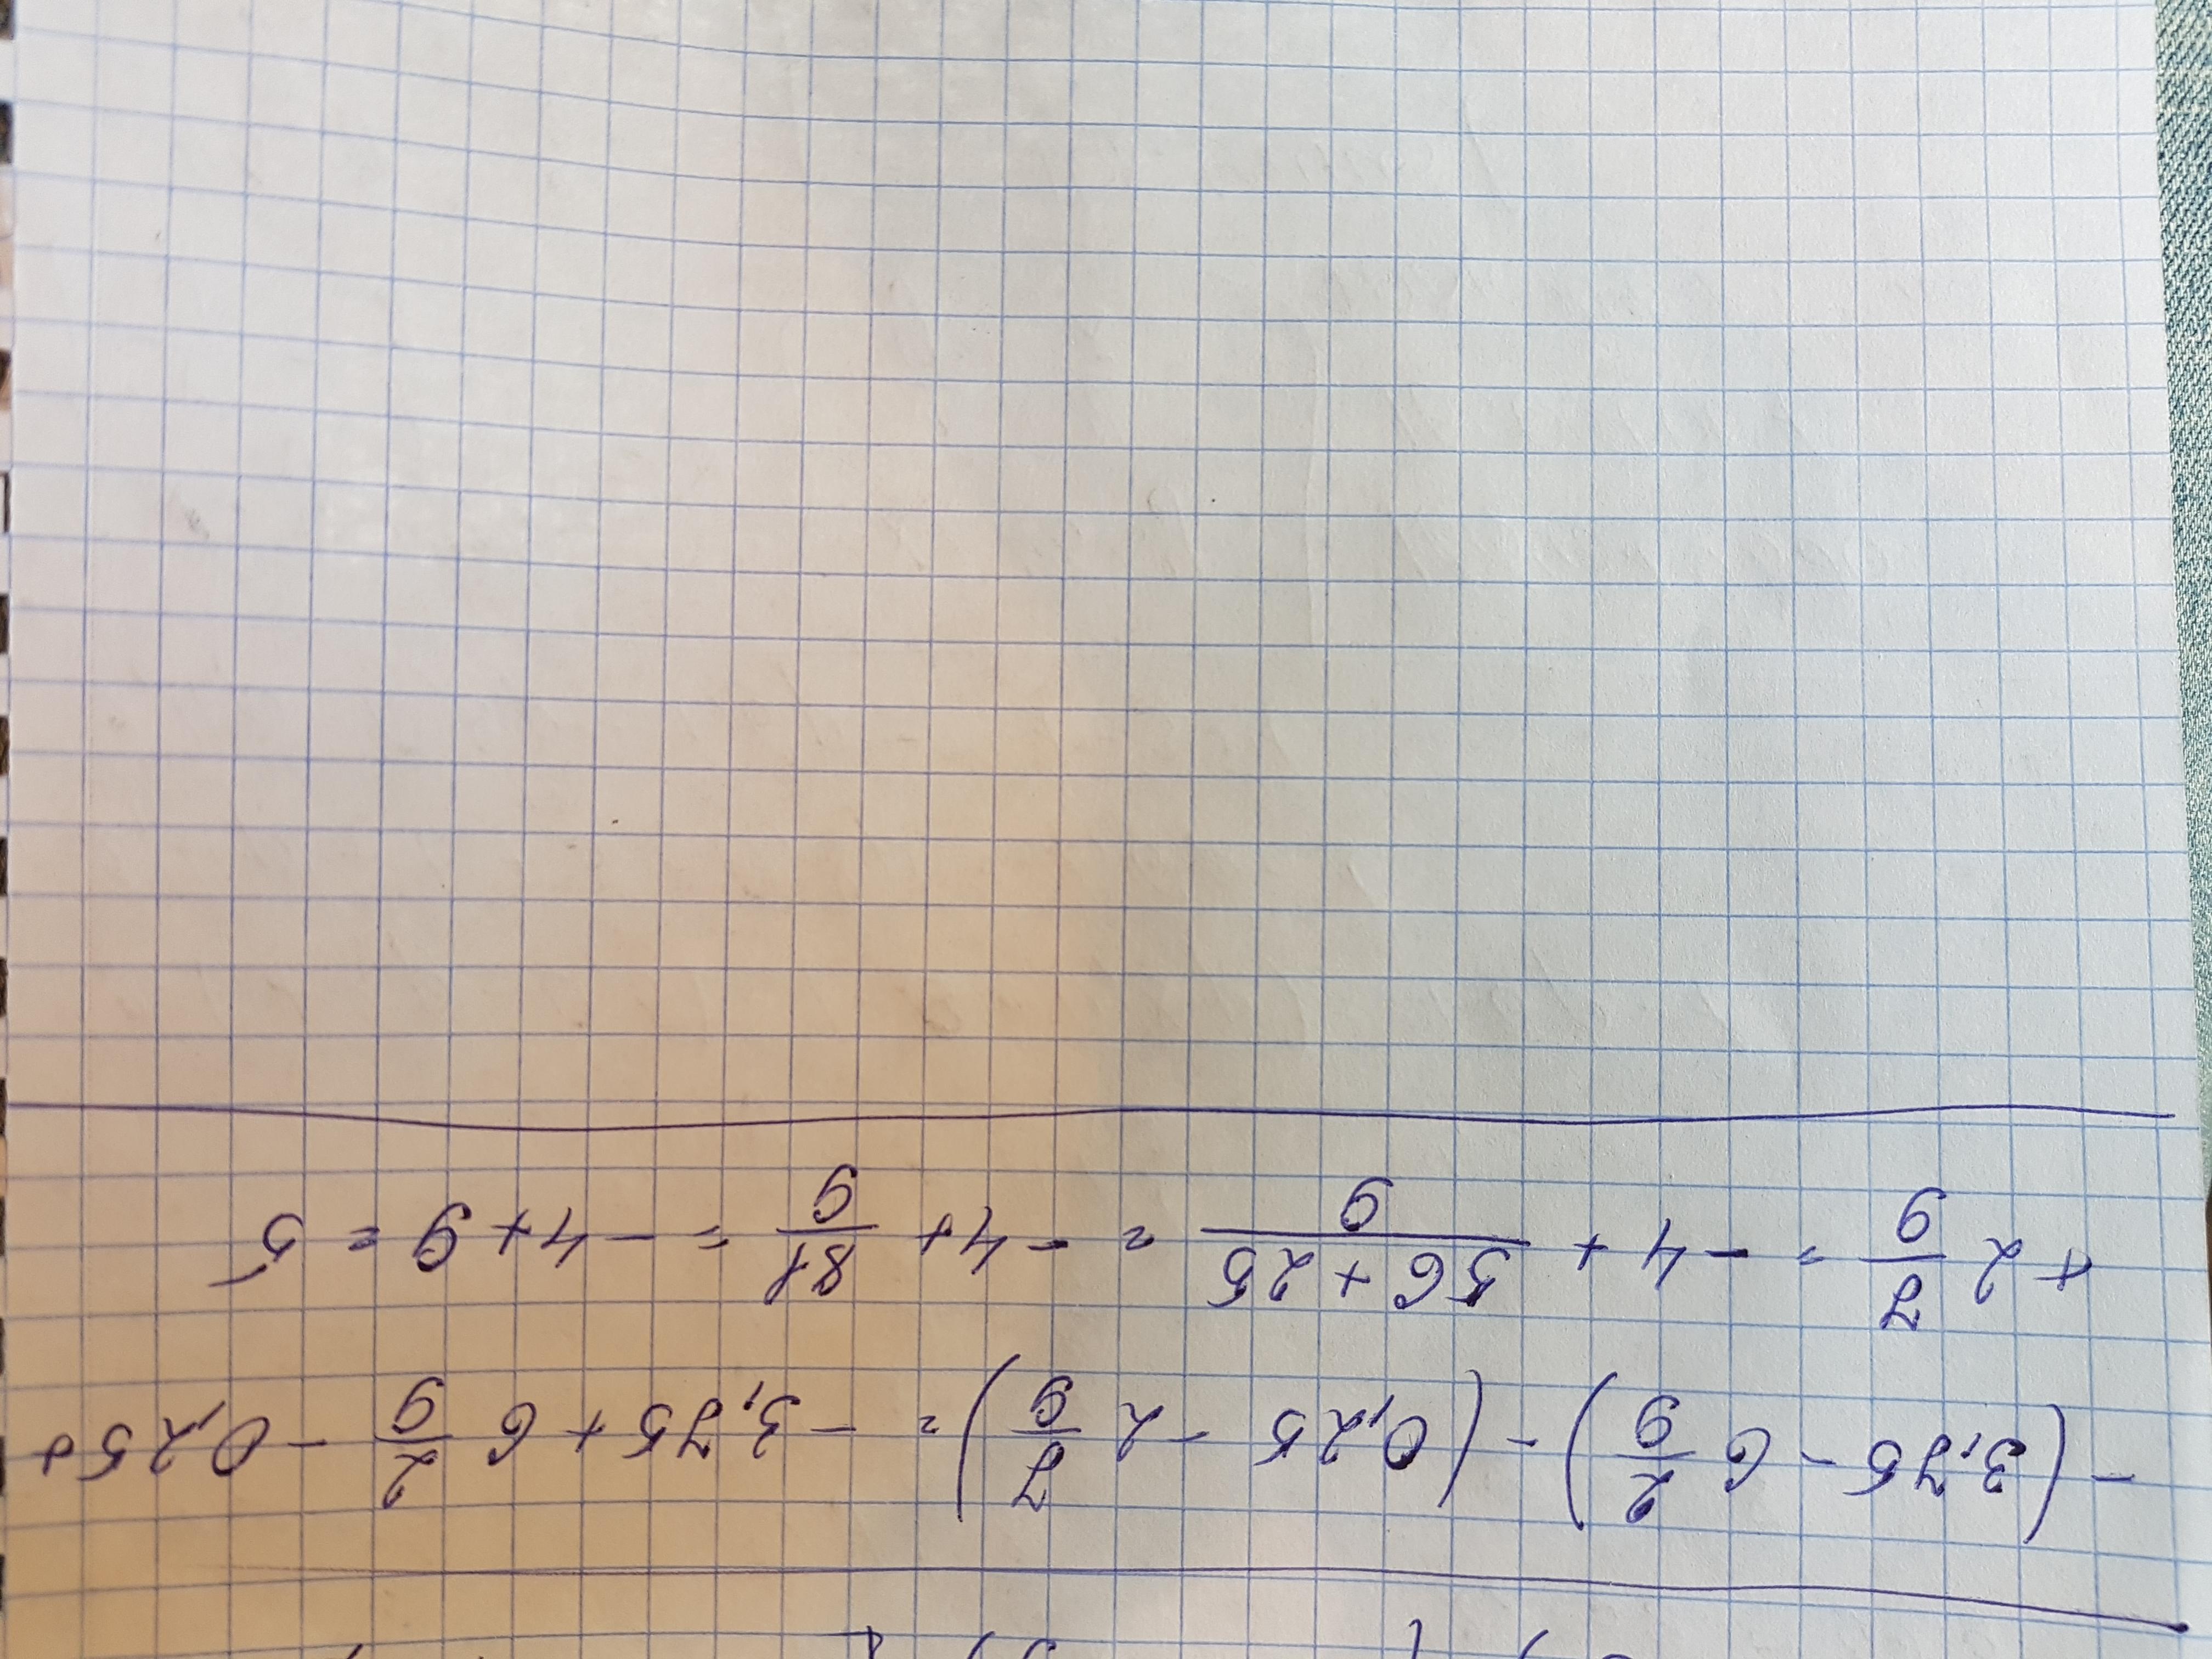 -(3,75 - 6 2/9) - (0,25 - 2 7/9) = -3,75 + 6 2/9 - 0,25 +
+ 2 7/9 = -4 + (56 + 25)/9 = -4 + 81/9 = -4 + 9 = 5